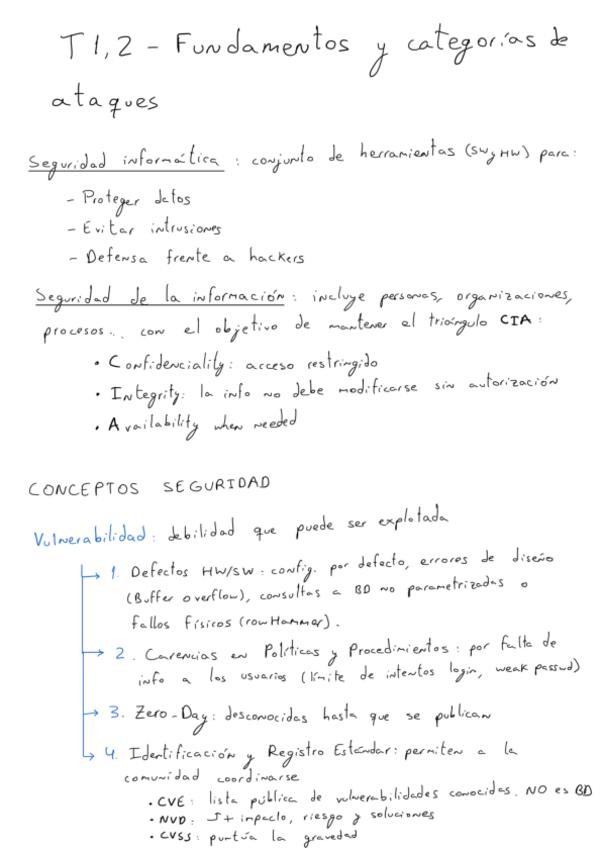 T1,2 - Fundamentos y categorías de
ataques
Seguridad informática : conjunto de herramientas (SW y HW) para:
- Proteger datos
- Evitar intrusiones
- Defensa frente a hackers
Seguridad de la información : incluye personas, organizaciones,
procesos... con el objetivo de mantener el triángulo CIA :
• Confidenciality : acceso restringido
• Integrity: la info no debe modificarse sin autorización
• Availability when needed
CONCEPTOS SEGURIDAD
Vulnerabilidad : debilidad que puede ser explotada
1. Defectos HW/SW : config. por defecto, errores de diseño
(Buffer overflow), consultas a BD no parametrizadas o
fallos físicos (rowHammer).
2. Carencias en Políticas y Procedimientos : por falta de
info a los usuarios (límite de intentos login, weak passwd)
3. Zero-Day : desconocidas hasta que se publican
4. Identificación y Registro Estándar : permiten a la
comunidad coordinarse
• CVE : lista pública de vulnerabilidades conocidas. NO es BD
• NVD : + impacto, riesgo y soluciones
• CVSS : puntúa la gravedad